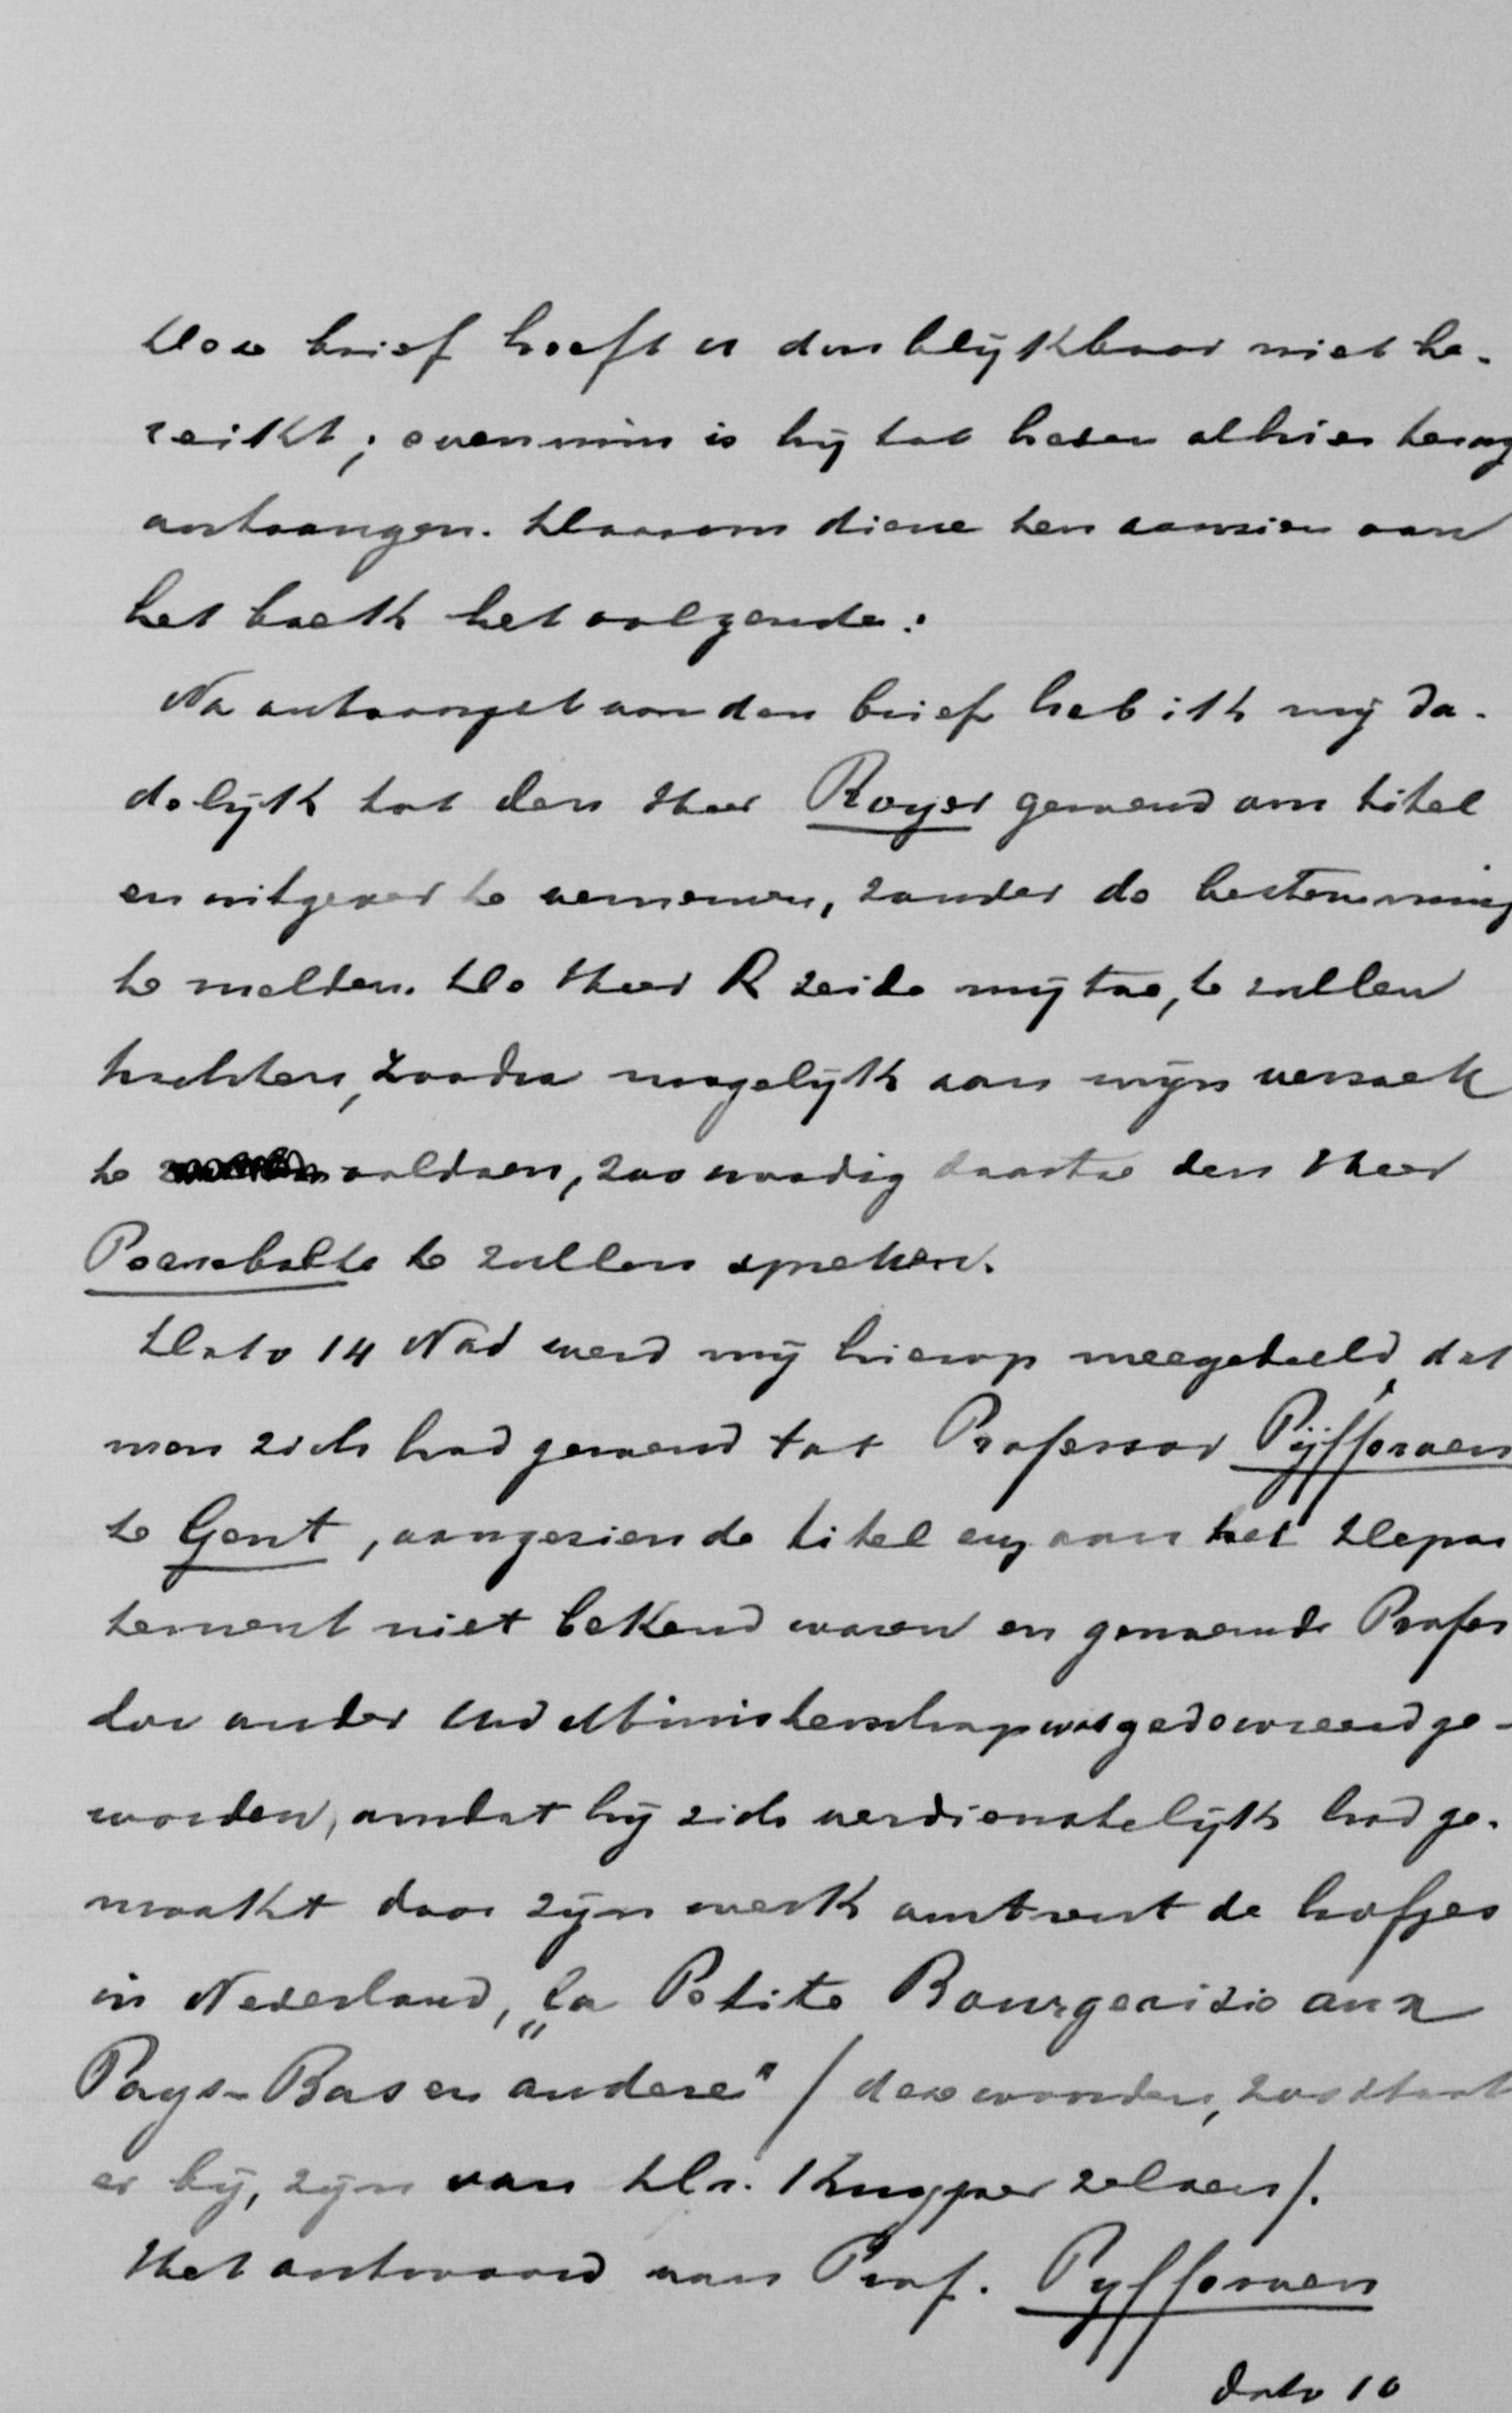 Deze brief heeft u dus blijkbaar niet be-
reikt; evenmin is hij tot heden alhier terug
ontvangen. Daarom diene ten aanzien van
het boek het volgende:
Na ontvangst van den brief heb ik mij da-
delijk tot den Heer Royer gewend om titel
en uitgever te vernemen, zonder de bestemming
te melden. De Heer R zeide mij toe, te zullen
trachten, zoodra mogelijk aan mijn verzoek
te voldoen, zoo noodig daartoe den Heer
te zullen spreken.
Dato 14 Nov werd mij hierop meegedeeld, dat
men zich had gewend tot Professor Pijfferoen
te Gent, aangezien de titel enz van het Depar
tement niet bekend waren en genoemde Profes
sor onder Uw Ministerschap was gedecoreerd ge-
worden, omdat hij zich verdienstelijk had ge-
maakt door zijn werk omtrent de hofjes
in Nederland, „La Petite Bourgeoisie aux
Pays-Bas en andere" / deze woorden, zoo staat
er bij, zijn van Dr. Kuyper zelven/.
Het antwoord van Prof. Pyfferoen
dato 16